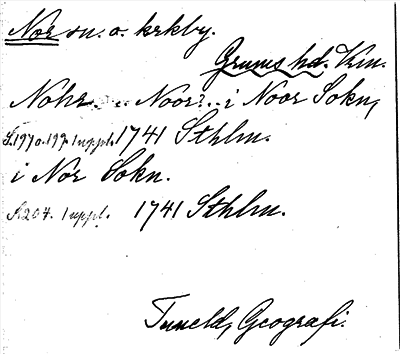 Nor sn. o. krkby.
Grums hd. Vrm.
Nohr... Noor?... i Noor Sokn,
S. 197 o. 199. 1 uppl. 1741 Sthlm.
i Nor Sokn.
S. 204. 1 uppl. 1741 Sthlm.
Tuneld, Geografi.